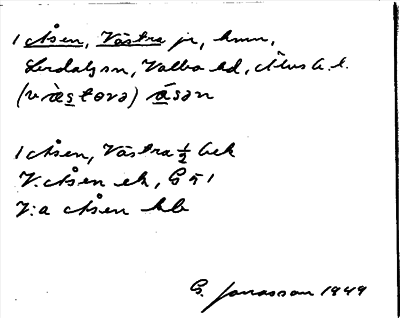 1 Åsen, Västra jr, hmn,
Lerdals sn, Valbo hd, Älvsb. l.
(v̀ä̀stərə) åsən
1 Åsen, Västra ½ bek
V. Åsen ek, G 51
V:a Åsen hb
G. Jonasson 1949